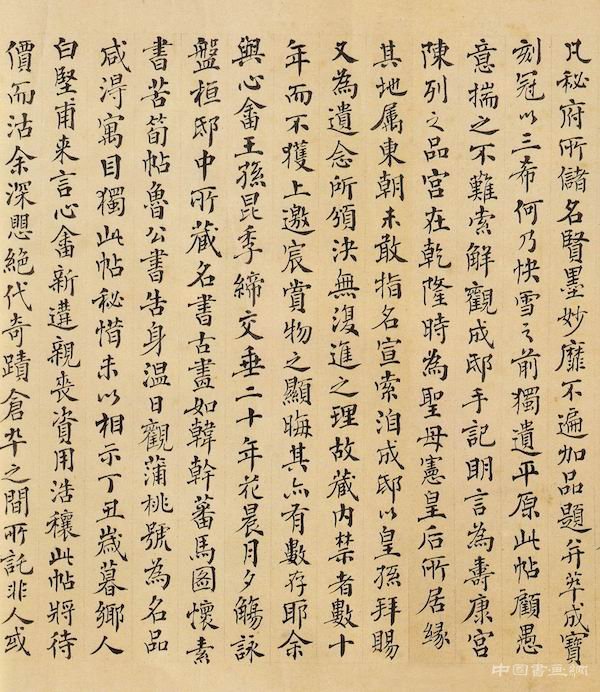 凡秘府所儲名賢墨妙靡不遍加品題并萃成寶
刻冠以三希何乃快雪之前獨遺平原此帖顧愚
意揣之不難索解觀成邸手記明言為壽康宮
陳列之品宮在乾隆時為聖母憲皇后所居緣
其地属東朝未敢指名宣索洎成邸以皇孫拜賜
又為遺念所頒決無復進之理故藏內禁者數十
年而不獲上邀宸賞物之顯晦其亦有數存耶余
與心畬王孫昆季締交垂二十年花晨月夕觴詠
盤桓邸中所藏名書古畫如韓幹蕃馬圖懷素
書苦筍帖魯公書告身溫日觀蒲桃號為名品
咸得寓目獨此帖秘惜未以相示丁丑歲暮鄉人
白堅甫来言心畬新遘親喪資用浩穰此帖將待
價而沽余深懼絕代奇蹟倉卒之間所託非人或
中国書画網